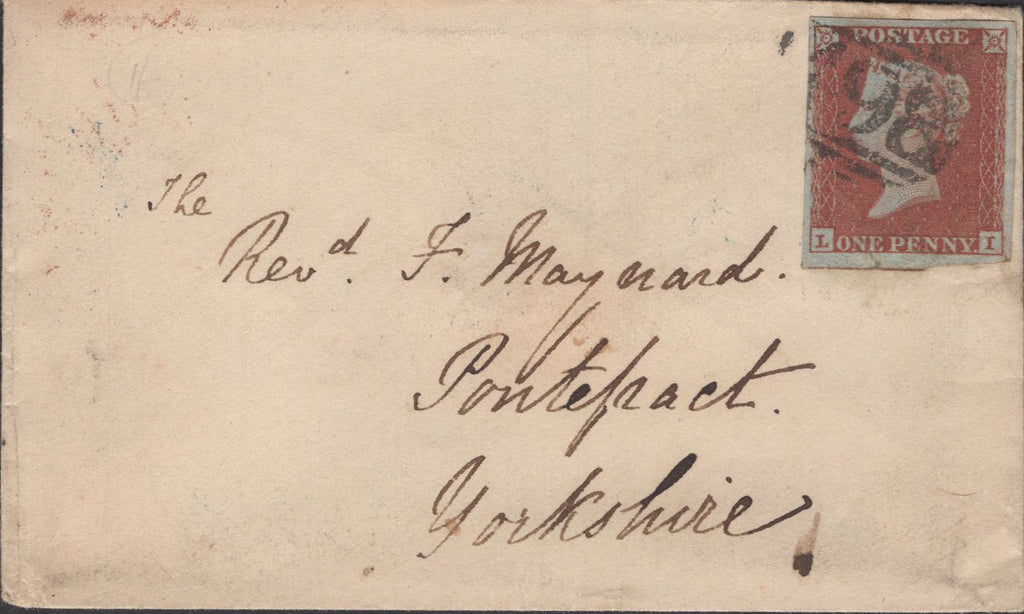 POSTAGE
98
L ONE PENNY I
The
Revd. F. Maynard.
Pontefract.
Yorkshire